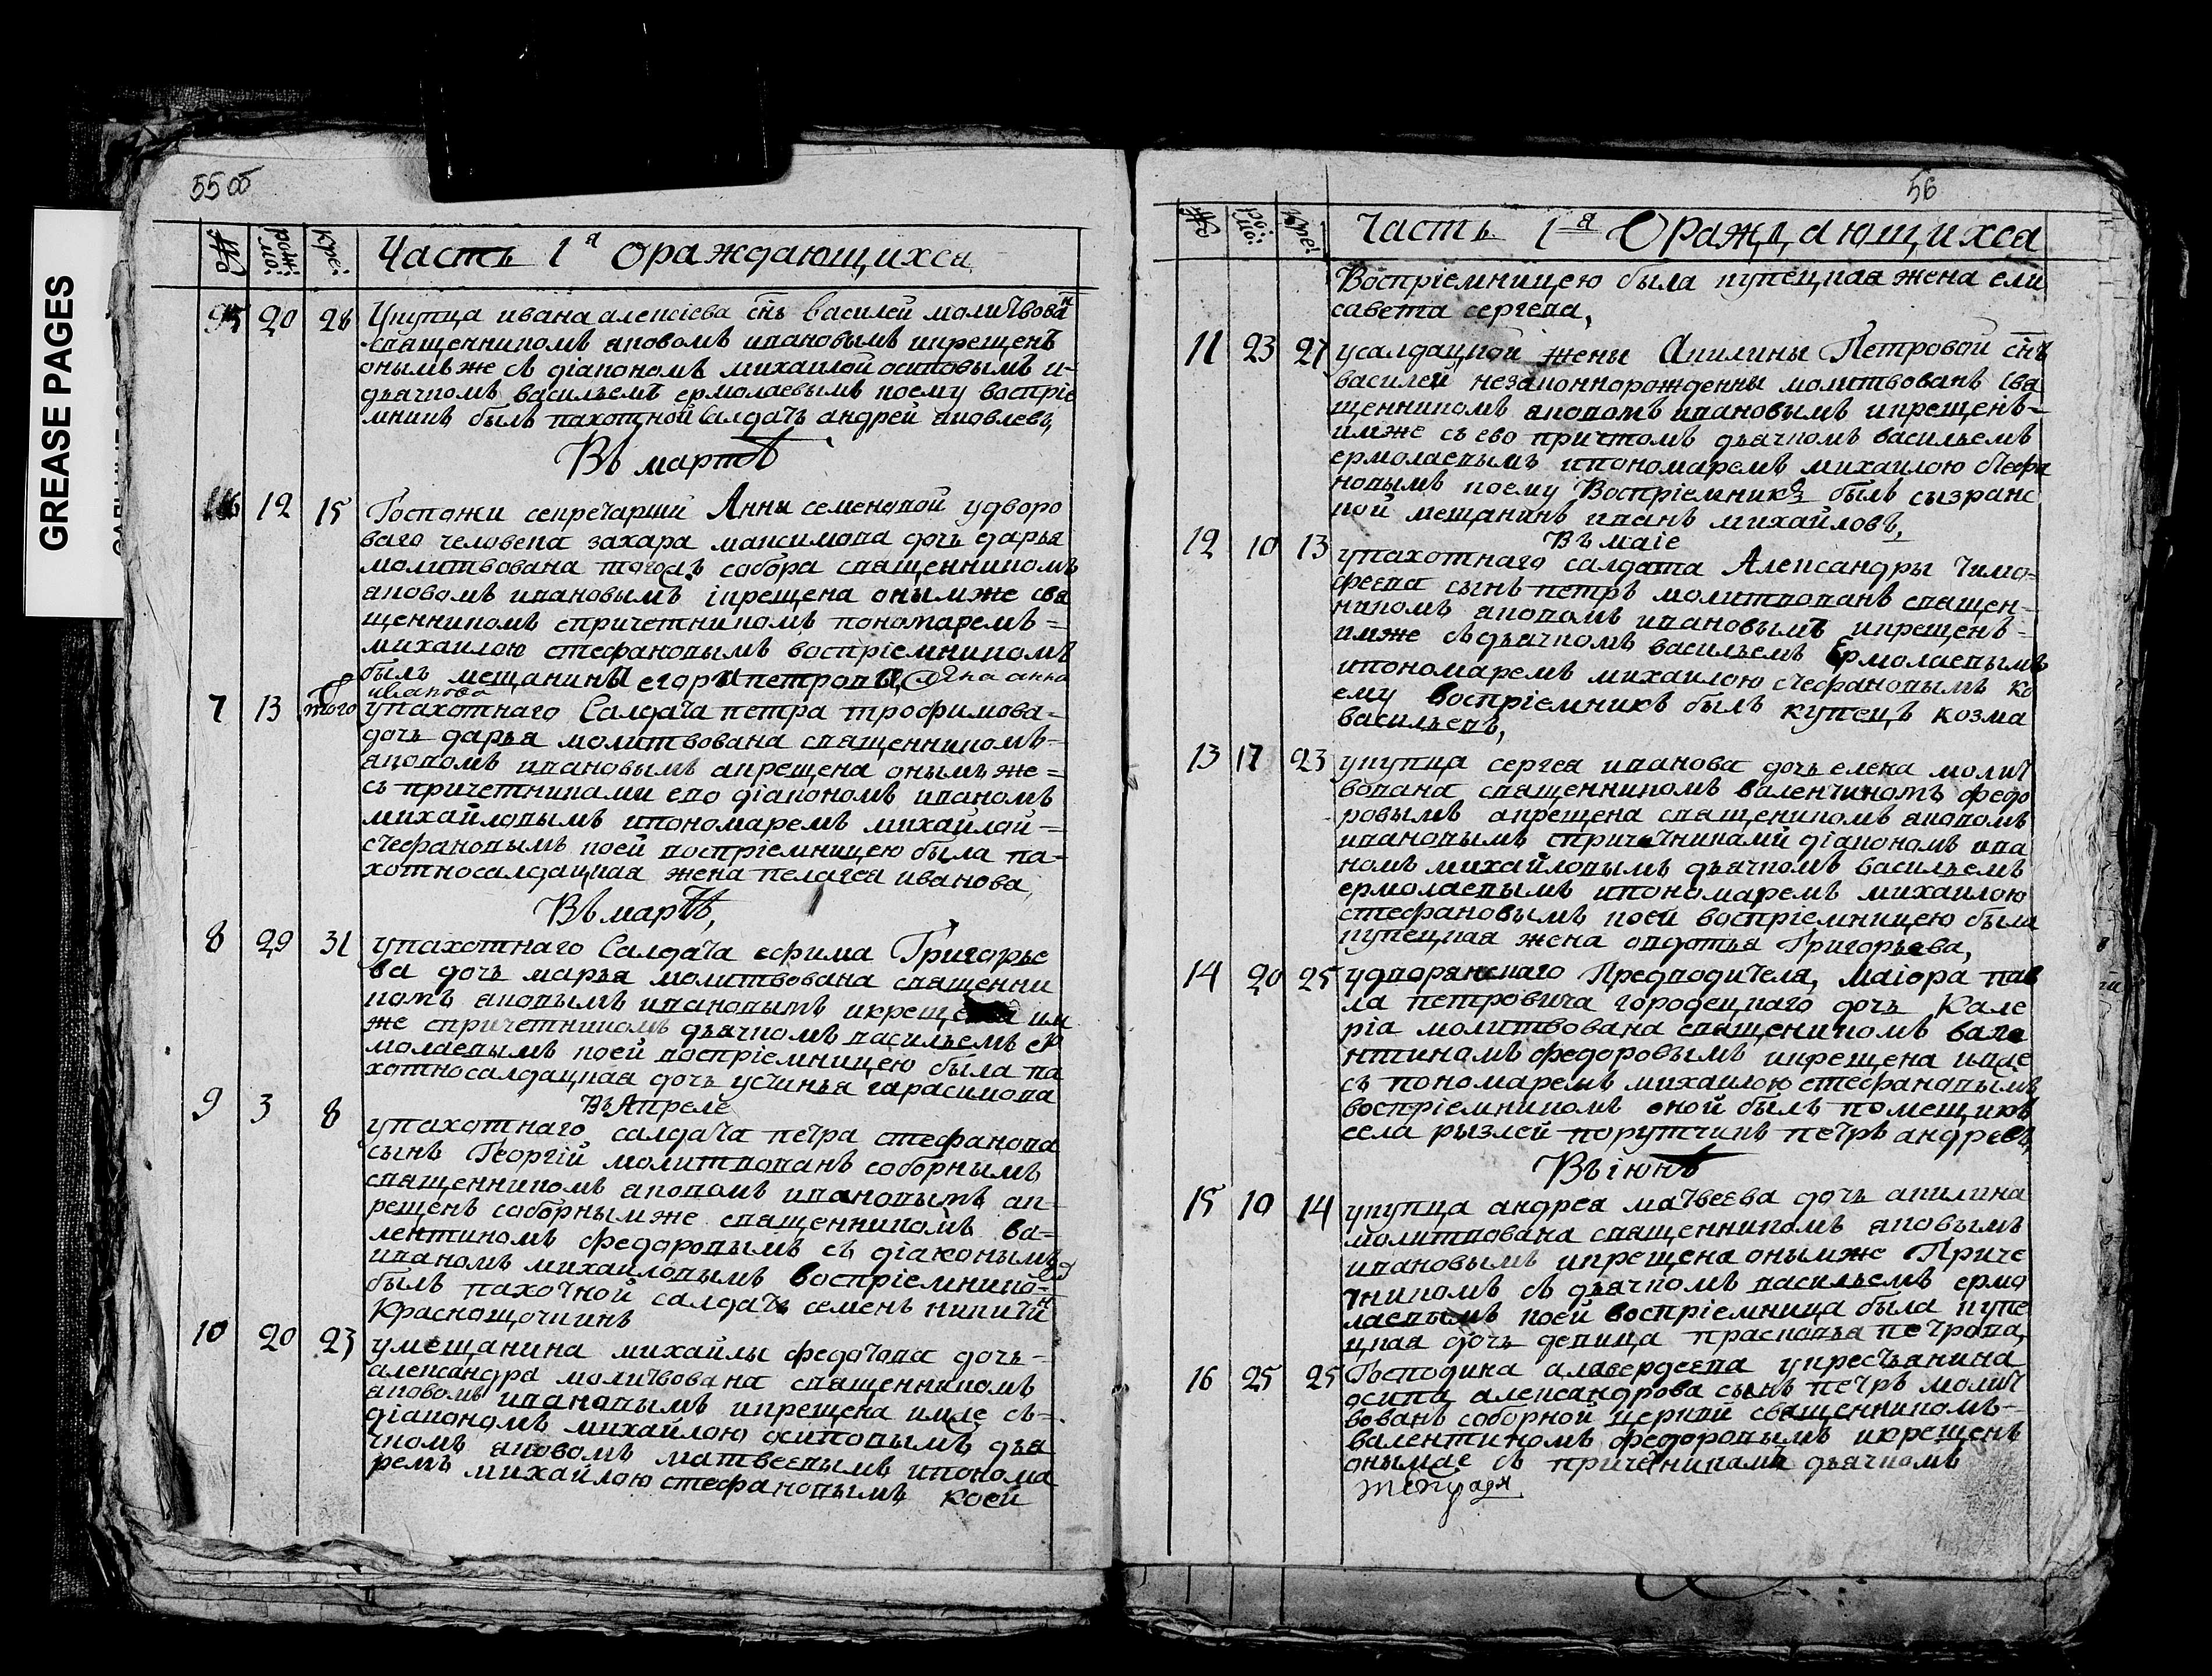 GREASE PAGES
55 об
№ рож: мо: кре: Часть 1я ораждающихся
5 20 28 Укупца ивана алексіева снъ василей молитвован
священникомъ яковомъ ивановымъ икрещенъ
онымъ же съ діакономъ михаилой осиповымъ и-
дьячкомъ васильемъ ермолаевымъ коему воспріе
мникъ былъ пахотной салдатъ андрей яковлевъ,
Въ мартѣ
6 12 15 Госпожи секретарши Анны семеновой удворо
ваго человека захара максимова дочь дарья
молитвована тогожъ собора священникомъ
яковомъ ивановымъ ікрещена онымже свя
щенникомъ спричетникомъ пономаремъ =
михаилою стефановымъ воспріемникомъ
былъ мещанинъ егоръ петровъ, анна
иванова
7 13 того упахотнаго Салдата петра трофимова =
дочь дарья молитвована священникомъ =
яковомъ ивановымъ акрещена онымъ же =
съ причетниками ево діакономъ иваномъ
михайловымъ ипономаремъ михайлой =
стефановымъ коей воспріемницею была па-
хотносалдацкая жена пелагея иванова,
Въ мартѣ,
8 29 31 упахотнаго Салдата ефима Григорье
ва дочь марья молитвована священни
комъ яковымъ ивановымъ икрещена им
же спричетникомъ дьячкомъ васильемъ ер
молаевымъ коей воспріемницею была па
хотносалдацкая дочь устинья гарасимова
Въ Апреле
9 3 8 упахотнаго салдата петра стефанова
сынъ Георгій молитвованъ соборнымъ
священникомъ яковомъ ивановымъ ак-
рещенъ соборнымже священникомъ ва=
лентиномъ федоровымъ съ діаконымъ
иваномъ михайловымъ воспріемнико-
былъ пахотной салдатъ семенъ никити
Краснощочкинъ
10 20 23 умещанина михайлы федотова дочь -
александра молитвована священникомъ
яковомъ ивановымъ икрещена имже съ =
діакономъ михайлою осиповымъ дья
чкомъ яковомъ матвеевымъ ипонома
ремъ михайлою стефановымъ коей
56
№ ро: мо: кре: Часть 1я Ораждающихся
Воспріемницею была купецкая жена ели
савета сергева,
11 23 27 усалдацкой жены Акилины Петровой снъ
василей незаконнорожденны молитвованъ свя
щенникомъ яковомъ ивановымъ икрещенъ =
имже съ ево причтомъ дьячкомъ васильемъ
ермолаевымъ ипономаремъ михаилою стефа
новымъ коему Воспріемникъ былъ сызранс
кой мещанинъ иванъ михайловъ,
Въ маіе
12 10 13 упахотнаго салдата Александры Тимо-
феева сынъ петръ молитвованъ священ-
никомъ яковомъ ивановымъ икрещенъ -
имже съ дьячкомъ васильемъ Ермолаевымъ
ипономаремъ михаилою стефановымъ ко
ему воспріемникъ былъ купецъ козма
васильевъ,
13 17 23 укупца сергея иванова дочь елена молит
вована священникомъ валентиномъ федо
ровымъ акрещена священикомъ яковомъ
ивановымъ спричетниками діакономъ ива
номъ михайловымъ дьячкомъ васильемъ
ермолаевымъ ипономаремъ михаилою
стефановымъ коей воспріемницею была
купецкая жена авдотья Григорьева,
14 20 25 удворянскаго Предводителя, маіора пав
ла петровича городецкаго дочь Кале
ріа молитвована священикомъ вале
нтиномъ федоровымъ икрещена имже
съ пономаремъ михаилою стефановымъ
воспріемникомъ оной былъ помещикъ
села рызлей порутчикъ петръ андреевъ,
Въ іюнѣ
15 10 14 укупца андрея матвеева дочь акилина
молитвована священникомъ яковымъ
ивановымъ икрещена онымже Приче
тникомъ съ дьячкомъ васильемъ ермо
лаевымъ коей воспріемница была купе
цкая дочь девица прасковья петрова,
16 25 25 Господина алавердеева укресьянина
осипа александрова сынъ петръ молит
вованъ соборной церкви священникомъ-
валентиномъ федоровымъ икрещенъ
онымже съ причетникамъ дьячкомъ